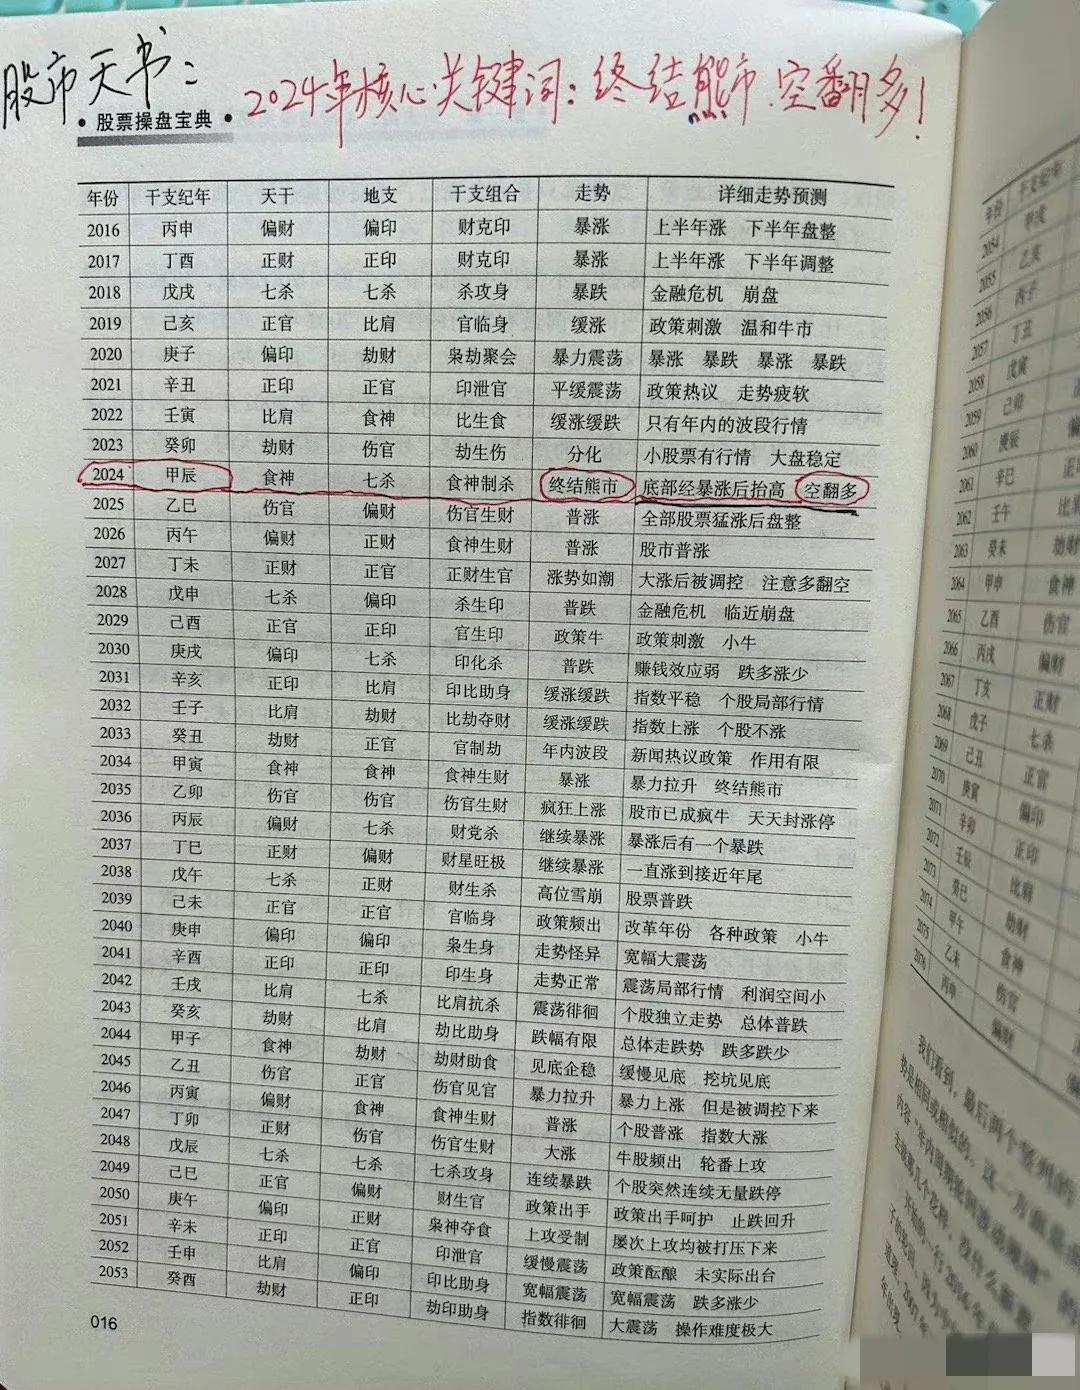 股市天书：
2024年核心关键词：终结熊市、空翻多！
• 股票操盘宝典 •
年份 干支纪年 天干 地支 干支组合 走势 详细走势预测
2016 丙申 偏财 偏印 财克印 暴涨 上半年涨 下半年盘整
2017 丁酉 正财 正印 财克印 暴涨 上半年涨 下半年调整
2018 戊戌 七杀 七杀 杀攻身 暴跌 金融危机 崩盘
2019 己亥 正官 比肩 官临身 缓涨 政策刺激 温和牛市
2020 庚子 偏印 劫财 枭劫聚会 暴力震荡 暴涨 暴跌 暴涨 暴跌
2021 辛丑 正印 正官 印泄官 平缓震荡 政策热议 走势疲软
2022 壬寅 比肩 食神 比生食 缓涨缓跌 只有年内的波段行情
2023 癸卯 劫财 伤官 劫生伤 分化 小股票有行情 大盘稳定
2024 甲辰 食神 七杀 食神制杀 终结熊市 底部经暴涨后抬高 空翻多
2025 乙巳 伤官 偏财 伤官生财 普涨 全部股票猛涨后盘整
2026 丙午 偏财 正财 食神生财 普涨 股市普涨
2027 丁未 正财 正官 正财生官 涨势如潮 大涨后被调控 注意多翻空
2028 戊申 七杀 偏印 杀生印 普跌 金融危机 临近崩盘
2029 己酉 正官 正印 官生印 政策牛 政策刺激 小牛
2030 庚戌 偏印 七杀 印化杀 普跌 赚钱效应弱 跌多涨少
2031 辛亥 正印 比肩 印比助身 缓涨缓跌 指数平稳 个股局部行情
2032 壬子 比肩 劫财 比劫夺财 缓涨缓跌 指数上涨 个股不涨
2033 癸丑 劫财 正官 官制劫 年内波段 新闻热议政策 作用有限
2034 甲寅 食神 食神 食神生财 暴涨 暴力拉升 终结熊市
2035 乙卯 伤官 伤官 伤官生财 疯狂上涨 股市已成疯牛 天天封涨停
2036 丙辰 偏财 七杀 财党杀 继续暴涨 暴涨后有一个暴跌
2037 丁巳 正财 偏财 财星旺极 继续暴涨 一直涨到接近年尾
2038 戊午 七杀 正财 财生杀 高位雪崩 股票普跌
2039 己未 正官 正官 官临身 政策频出 改革年份 各种政策 小牛
2040 庚申 偏印 偏印 枭生身 走势怪异 宽幅大震荡
2041 辛酉 正印 正印 印生身 走势正常 震荡局部行情 利润空间小
2042 壬戌 比肩 七杀 比肩抗杀 震荡徘徊 个股独立走势 总体普跌
2043 癸亥 劫财 比肩 劫比助身 跌幅有限 总体走跌势 跌多跌少
2044 甲子 食神 劫财 劫财助食 见底企稳 缓慢见底 挖坑见底
2045 乙丑 伤官 正官 伤官见官 暴力拉升 暴力上涨 但是被调控下来
2046 丙寅 偏财 食神 食神生财 普涨 个股普涨 指数大涨
2047 丁卯 正财 伤官 伤官生财 大涨 牛股频出 轮番上攻
2048 戊辰 七杀 七杀 七杀攻身 连续暴跌 个股突然连续无量跌停
2049 己巳 正官 偏财 财生官 政策出手 政策出手呵护 止跌回升
2050 庚午 偏印 正财 枭神夺食 上攻受制 屡次上攻均被打压下来
2051 辛未 正印 正官 印泄官 缓慢震荡 政策酝酿 未实际出台
2052 壬申 比肩 偏印 印比助身 宽幅震荡 宽幅震荡 跌多涨少
2053 癸酉 劫财 正印 劫印助身 指数徘徊 大震荡 操作难度极大
016
年份 干支纪年
2054 甲戌
2055 乙亥
2056 丙子
2057 丁丑
2058 戊寅
2059 己卯
2060 庚辰
2061 辛巳
2062 壬午
2063 癸未 劫财
2064 甲申 食神
2065 乙酉 伤官
2066 丙戌 偏财
2067 丁亥 正财
2068 戊子 七杀
2069 己丑 正官
2070 庚寅 偏印
2071 辛卯 正印
2072 壬辰 比肩
2073 癸巳 劫财
2074 甲午 食神
2075 乙未 伤官
2076 丙申 偏财
我们看到，最后两个
势是相同或相似的。这一方